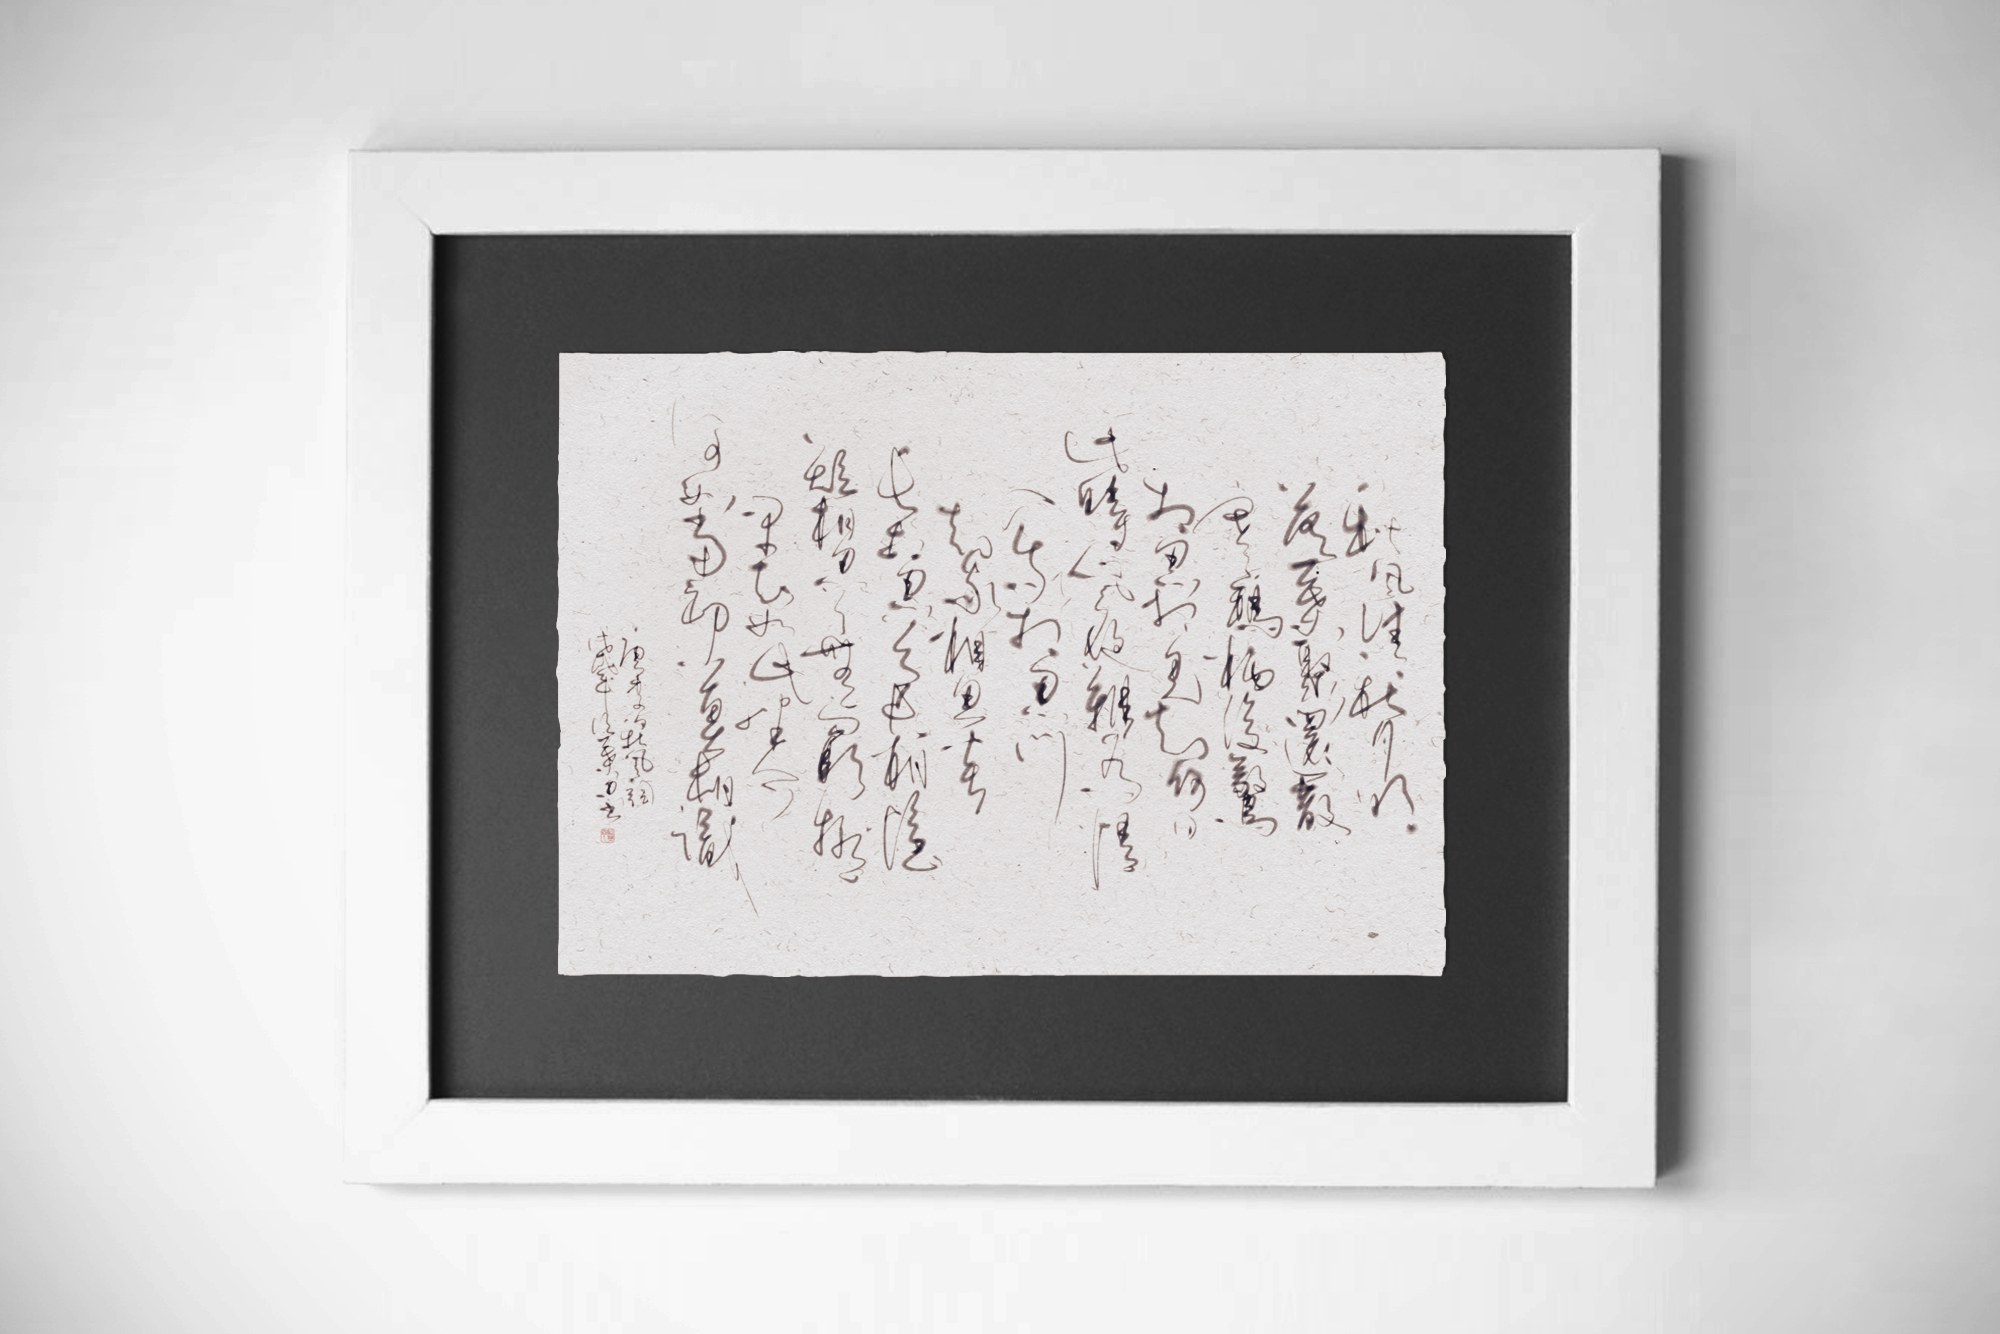 秋風清秋月明
落葉聚還散
寒鴉棲復驚
相思相見知何日
此時此夜難為情
入我相思門
知我相思苦
長相思兮長相憶
短相思兮無窮極
早知如此絆人心
何如當初莫相識
唐李白秋風詞